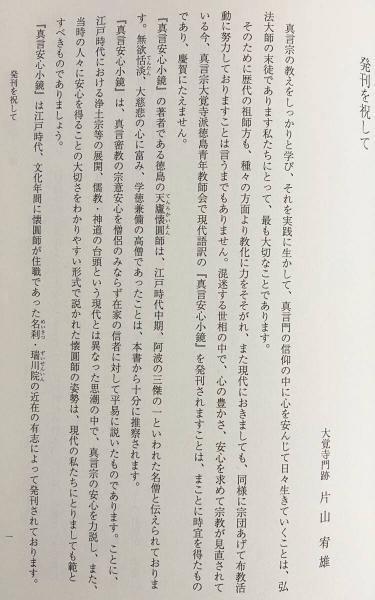 発刊を祝して
大覚寺門跡 片山宥雄
真言宗の教えをしっかりと学び、それを実践に生かして、真言門の信仰の中に心を安んじて日々生きていくことは、弘
法大師の末徒であります私たちにとって、最も大切なことであります。
そのために歴代の祖師方も、種々の方面より教化に力をそそがれ、また現代におきましても、同様に宗団あげて布教活
動に努力しておりますことは言うまでもありません。混迷する世相の中で、心の豊かさ、安心を求めて宗教が見直されて
いる今、真言宗大覚寺派徳島青年教師会で現代語訳の『真言安心小鏡』を発刊されますことは、まことに時宜を得たもの
であり、慶賀にたえません。
『真言安心小鏡』の著者である徳島の天龐懐圓師は、江戸時代中期、阿波の三傑の一といわれた名僧と伝えられておりま
す。無欲恬淡、大慈悲の心に富み、学徳兼備の高僧であったことは、本書から十分に推察されます。
『真言安心小鏡』は、真言密教の宗意安心を僧侶のみならず在家の信者に対して平易に説いたものであります。ことに、
江戸時代における浄土宗等の展開、儒教・神道の台頭という現代とは異なった思潮の中で、真言宗の安心を力説し、また、
当時の人々に安心を得ることの大切さをわかりやすい形式で説かれた懐圓師の姿勢は、現代の私たちにとりましても範と
すべきものでありましょう。
『真言安心小鏡』は江戸時代、文化年間に懐圓師が住職であった名刹・瑞川院の近在の有志によって発刊されております。
発刊を祝して
一